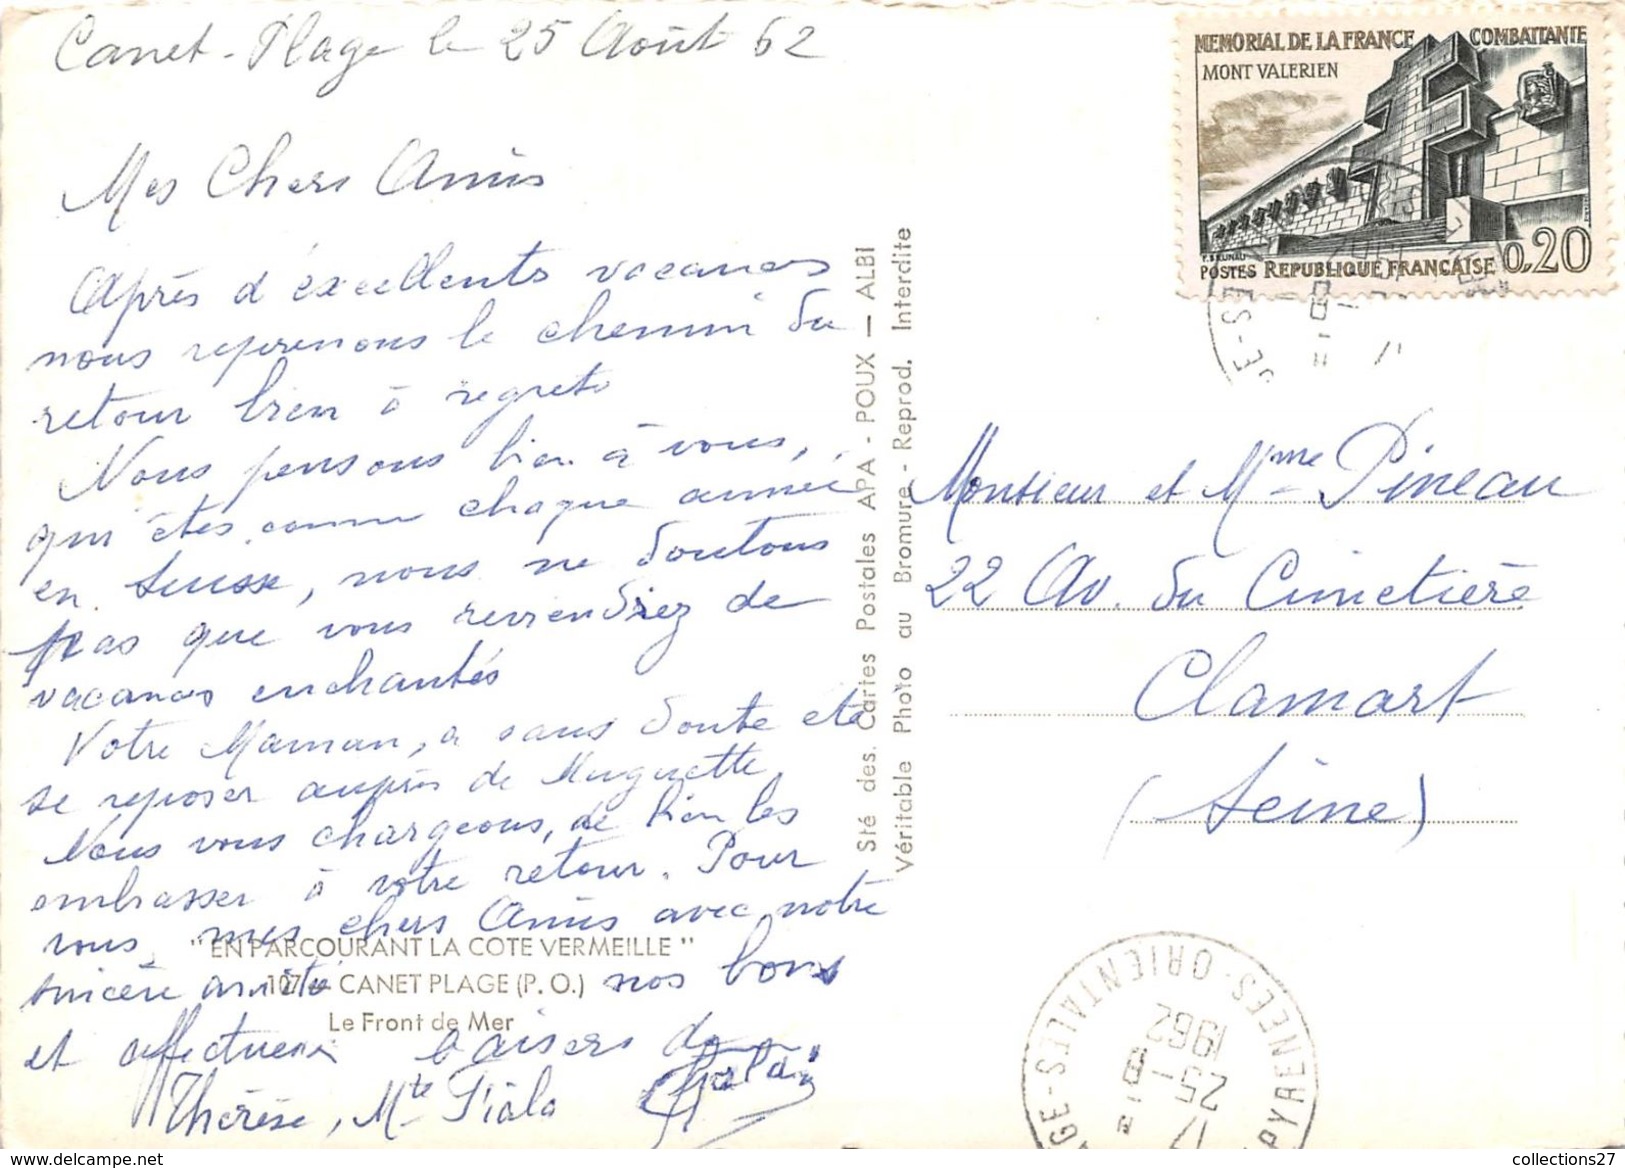 Canet-Plage le 25 Août 62
Mes Chers Amis
Après d'éxcellents vacances
nous reprenons le chemin du
retour bien à regrets
Nous pensons bien à vous,
qui êtes comme chaque année
en Suisse, nous ne doutons
pas que vous reviendriez de
vacances enchantés
Votre Maman, a sans doute été
se reposer auprès de Muguette
Nous vous chargeons, de bien les
embrasser à votre retour. Pour
vous, mes chers Amis avec notre
sincère amitié nos bons
et affectueux baisers de
Thérèse, Mte
"EN PARCOURANT LA COTE VERMEILLE"
107 - CANET PLAGE (P. O.)
Le Front de Mer
Sté des Cartes Postales APA - POUX — ALBI
Véritable Photo au Bromure - Reprod. Interdite
MEMORIAL DE LA FRANCE COMBATTANTE
MONT VALERIEN
POSTES REPUBLIQUE FRANÇAISE 0,20
Monsieur et Mme Pineau
22 Av. du Cimetière
Clamart
(Seine)
PYRENEES-ORIENTALES
17
25-8
1962
collections27